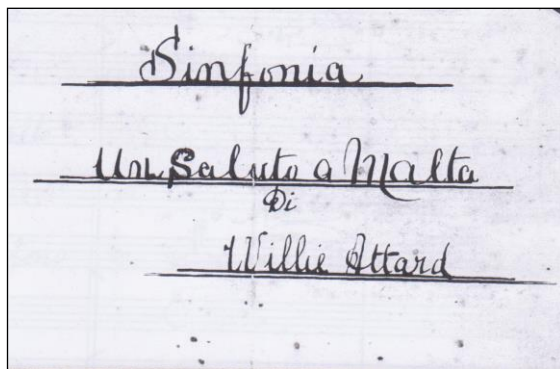 Sinfonia
Un Saluto a Malta
Di
Willie Attard